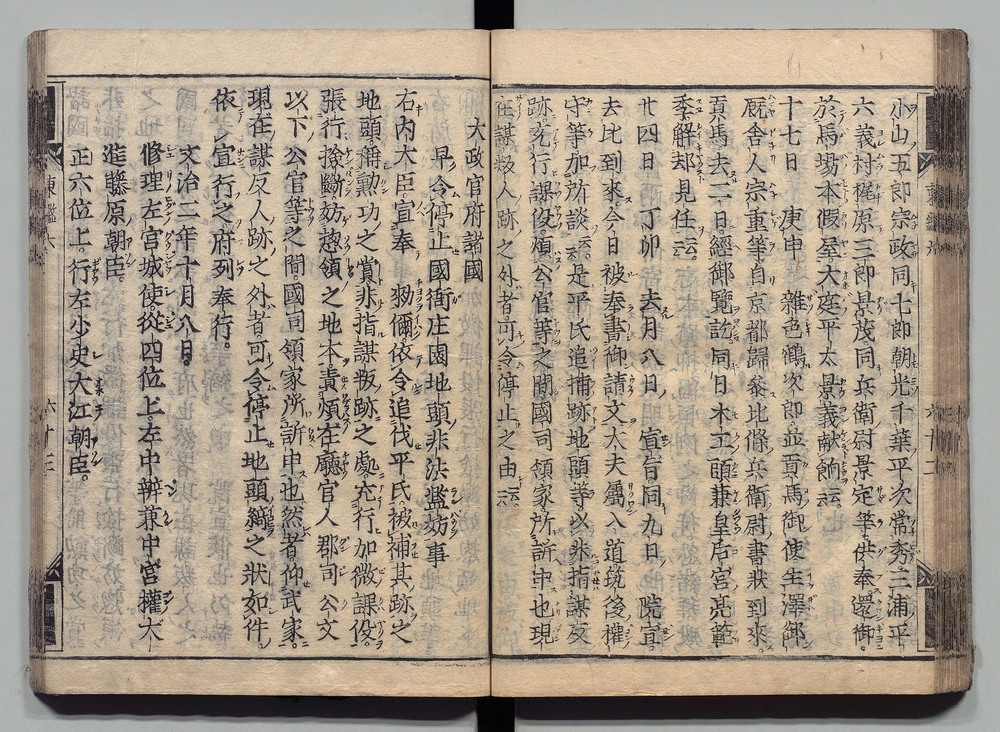 小山五郎宗政同七郎朝光千葉平次常秀三浦平
六義村梶原三郎景茂同兵衛尉景定等供奉還御
於馬場本假屋大庭平太景義献餉云云
十七日　庚申　雜色鶴次郎並貢馬御使生澤御
厩舎人宗重等自京都歸參比條兵衛尉書狀到來
貢馬去二日經御覽訖同日木工頭兼皇后宮亮範
季解却見任云云
廿四日　丁卯　去月八日　宣旨同九日　院宣
去比到來今日被奉書御請文大夫屬入道筑後權
守等加所談云云是平氏追捕跡地頭等以非指謀反
跡充行課役煩公官等之間國司領家所訴申也現
在謀叛人跡之外者可令停止之由云云
太政官府諸國
早令停止國衙庄園地頭非法濫妨事
右内大臣宣奉　勅儞依令追伐平氏被補其跡之
地頭稱勲功之賞非指謀叛跡之處充行加徴課役
張行撿斷妨惣領之地本責煩在廳官人郡司公文
以下公官等之間國司領家所訴申也然者仰武家
現在謀反人跡之外者可令停止地頭綺之狀如件
依宣行之府列奉行
文治二年十月八日
修理左宮城使從四位上左中辨兼中宮權大
進藤原朝臣
正六位上行左少史大江朝臣
東鑑六
六十三